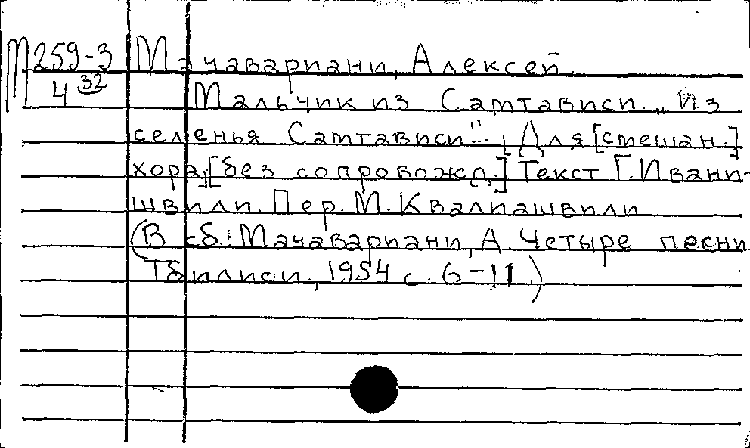 М 259-3 Мачавариани, Алексей
4 32 Мальчик из Самтависи. „Из
селенья Самтависи". Для [смешан.]
хора, [без сопровожд.] Текст Г. Ивани-
швили. Пер. М. Квалиашвили
(В сб.: Мачавариани, А. Четыре песни
Тбилиси, 1954 с. 6-11)